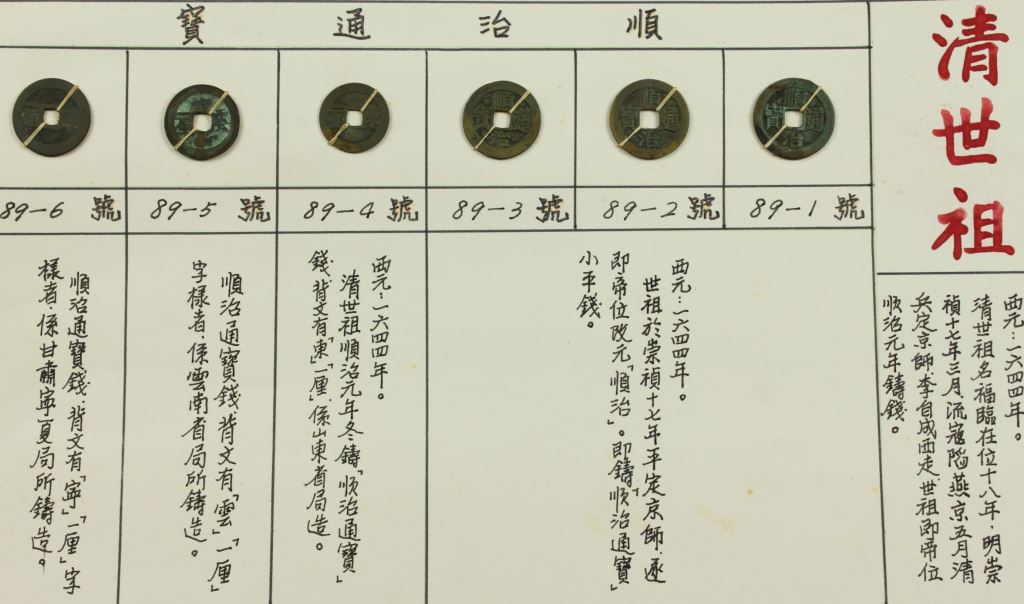 清世祖
西元：一六四四年。
清世祖名福臨在位十八年，明崇
禎十七年三月，流寇陷燕京五月清
兵定京師李自成西走，世祖即帝位
順治元年鑄錢。
順治通寶
89-1 號
89-2 號
89-3 號
89-4 號
89-5 號
89-6 號
西元：一六四四年。
世祖於崇禎十七年平定京師，遂
即帝位改元「順治」。即鑄「順治通寶」
小平錢。
西元：一六四四年。
清世祖順治元年冬鑄「順治通寶」
錢，背文有「東」「一厘」，係山東省局造。
順治通寶錢背文有「雲」「一厘」
字樣者，係雲南省局所鑄造。
順治通寶錢，背文有「寧」「一厘」字
樣者，係甘肅寧夏局所鑄造。